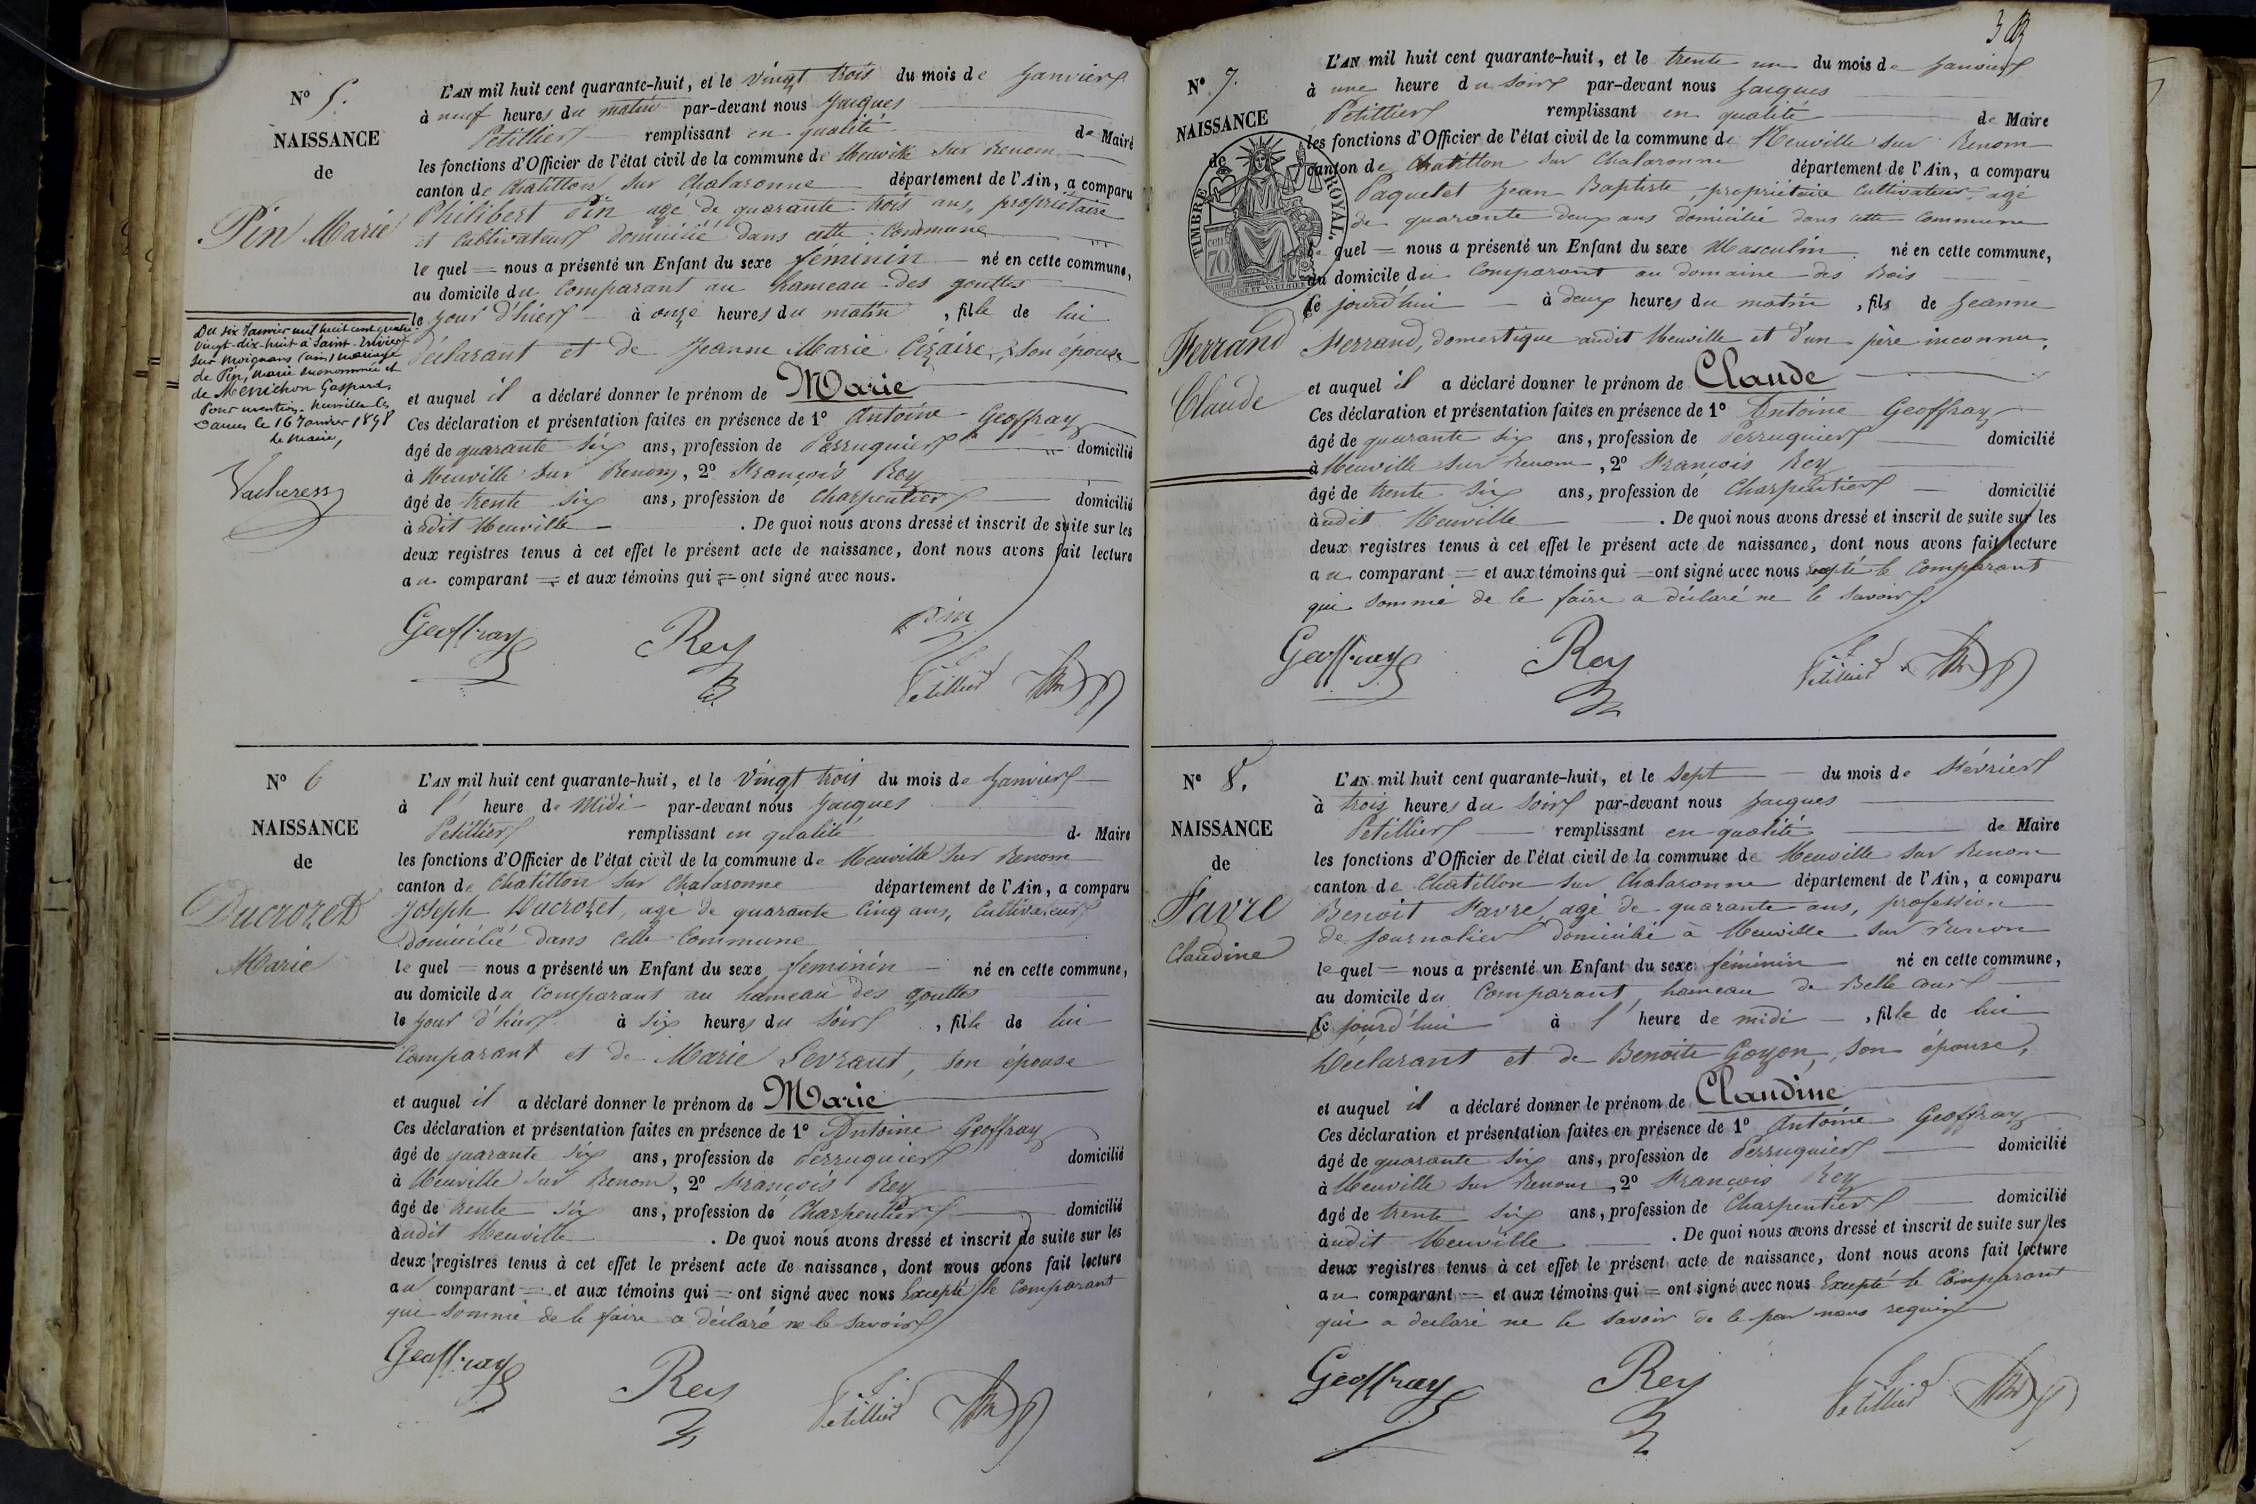 N° 5.
NAISSANCE
de
Pin Marie
Du six Janvier mil huit cent quatre-
vingt-dix-huit à Saint-Trivier
sur Moignans (Ain) mariage
de Pin, Marie susnommée et
de Menichon Gaspard.
Pour mention. Neuville les
Dames le 16 Janvier 1898
Le Maire,
Vacheress
L'AN mil huit cent quarante-huit, et le vingt trois du mois de Janvier
à neuf heures du matin par-devant nous Jacques
Petillier remplissant en qualité de Maire
les fonctions d'Officier de l'état civil de la commune de Neuville sur Renom
canton de Chatillon sur Chalaronne département de l'Ain, a comparu
Philibert Pin agé de quarante trois ans, propriétaire
et cultivateur domicilié dans cette commune
lequel = nous a présenté un Enfant du sexe féminin né en cette commune,
au domicile du Comparant au hameau des gouttes
le jour d'hier à onze heures du matin, fille de lui
déclarant et de Jeanne Marie Cézaire, son épouse
et auquel il a déclaré donner le prénom de Marie
Ces déclaration et présentation faites en présence de 1° Antoine Geoffray
âgé de quarante six ans, profession de Perruquier domicilié
à Neuville sur Renom, 2° François Rey
âgé de trente six ans, profession de charpentier domicilié
à udit Neuville . De quoi nous avons dressé et inscrit de suite sur les
deux registres tenus à cet effet le présent acte de naissance, dont nous avons fait lecture
au comparant = et aux témoins qui = ont signé avec nous.
Geoffray Rey Pin
Petillier
N° 6
NAISSANCE
de
Ducrozet
Marie
L'AN mil huit cent quarante-huit, et le vingt trois du mois de Janvier
à l' heure de Midi par-devant nous Jacques
Petillier remplissant en qualité de Maire
les fonctions d'Officier de l'état civil de la commune de Neuville sur Renom
canton de Chatillon sur Chalaronne département de l'Ain, a comparu
Joseph Ducrozet, agé de quarante cinq ans, Cultivateur
domicilié dans cette Commune
lequel = nous a présenté un Enfant du sexe féminin né en cette commune,
au domicile du Comparant au hameau des gouttes
le jour d'hier à six heures du soir , fille de lui
Comparant et de Marie Levraut, son épouse
et auquel il a déclaré donner le prénom de Marie
Ces déclaration et présentation faites en présence de 1° Antoine Geoffray
âgé de quarante six ans, profession de Perruquier domicilié
à Neuville sur Renom, 2° François Rey
âgé de trente six ans, profession de Charpentier domicilié
à udit Neuville . De quoi nous avons dressé et inscrit de suite sur les
deux registres tenus à cet effet le présent acte de naissance, dont nous avons fait lecture
au comparant = et aux témoins qui = ont signé avec nous Excepté le Comparant
que sommé de le faire a déclaré ne le savoir
Geoffray Rey Petillier
N° 7.
NAISSANCE
de
TIMBRE ROYAL.
70.
Ferrand
Claude
L'AN mil huit cent quarante-huit, et le trente un du mois de Janvier
à une heure du soir par-devant nous Jacques
Petillier remplissant en qualité de Maire
les fonctions d'Officier de l'état civil de la commune de Neuville sur Renom
canton de Chatillon sur Chalaronne département de l'Ain, a comparu
Paquelet Jean Baptiste propriétaire cultivateur agé
de quarante deux ans domicilié dans cette commune
le quel = nous a présenté un Enfant du sexe Masculin né en cette commune,
au domicile du Comparant au domaine des Bois
le jourd'hui à deux heures du matin , fils de Jeanne
Ferrand, domestique audit Neuville et d'un père inconnu.
et auquel il a déclaré donner le prénom de Claude
Ces déclaration et présentation faites en présence de 1° Antoine Geoffray
âgé de quarante six ans, profession de Perruquier domicilié
à Neuville sur Renom, 2° François Rey
âgé de trente six ans, profession de Charpentier domicilié
à udit Neuville . De quoi nous avons dressé et inscrit de suite sur les
deux registres tenus à cet effet le présent acte de naissance, dont nous avons fait lecture
au comparant = et aux témoins qui = ont signé avec nous excepté le Comparant
qui sommé de le faire a déclaré ne le savoir.
Geoffray Rey Petillier
N° 8.
NAISSANCE
de
Favre
Claudine
L'AN mil huit cent quarante-huit, et le sept du mois de Février
à trois heures du soir par-devant nous Jacques
Petillier remplissant en qualité de Maire
les fonctions d'Officier de l'état civil de la commune de Neuville sur Renom
canton de Chatillon sur Chalaronne département de l'Ain, a comparu
Benoit Favre, agé de quarante ans, profession
de journalier domicilié à Neuville sur Renon
lequel = nous a présenté un Enfant du sexe féminin né en cette commune,
au domicile du Comparant, hameau de Belle cour
le jourd'hui à l' heure de midi , fille de lui
Déclarant et de Benoite Goyon, son épouse,
et auquel il a déclaré donner le prénom de Claudine
Ces déclaration et présentation faites en présence de 1° Antoine Geoffray
âgé de quarante six ans, profession de Perruquier domicilié
à Neuville sur Renom, 2° François Rey
âgé de trente six ans, profession de Charpentier domicilié
à udit Neuville . De quoi nous avons dressé et inscrit de suite sur les
deux registres tenus à cet effet le présent acte de naissance, dont nous avons fait lecture
au comparant = et aux témoins qui = ont signé avec nous Excepté le Comparant
qui a déclaré ne le savoir de le par nous requis
Geoffray Rey Petillier